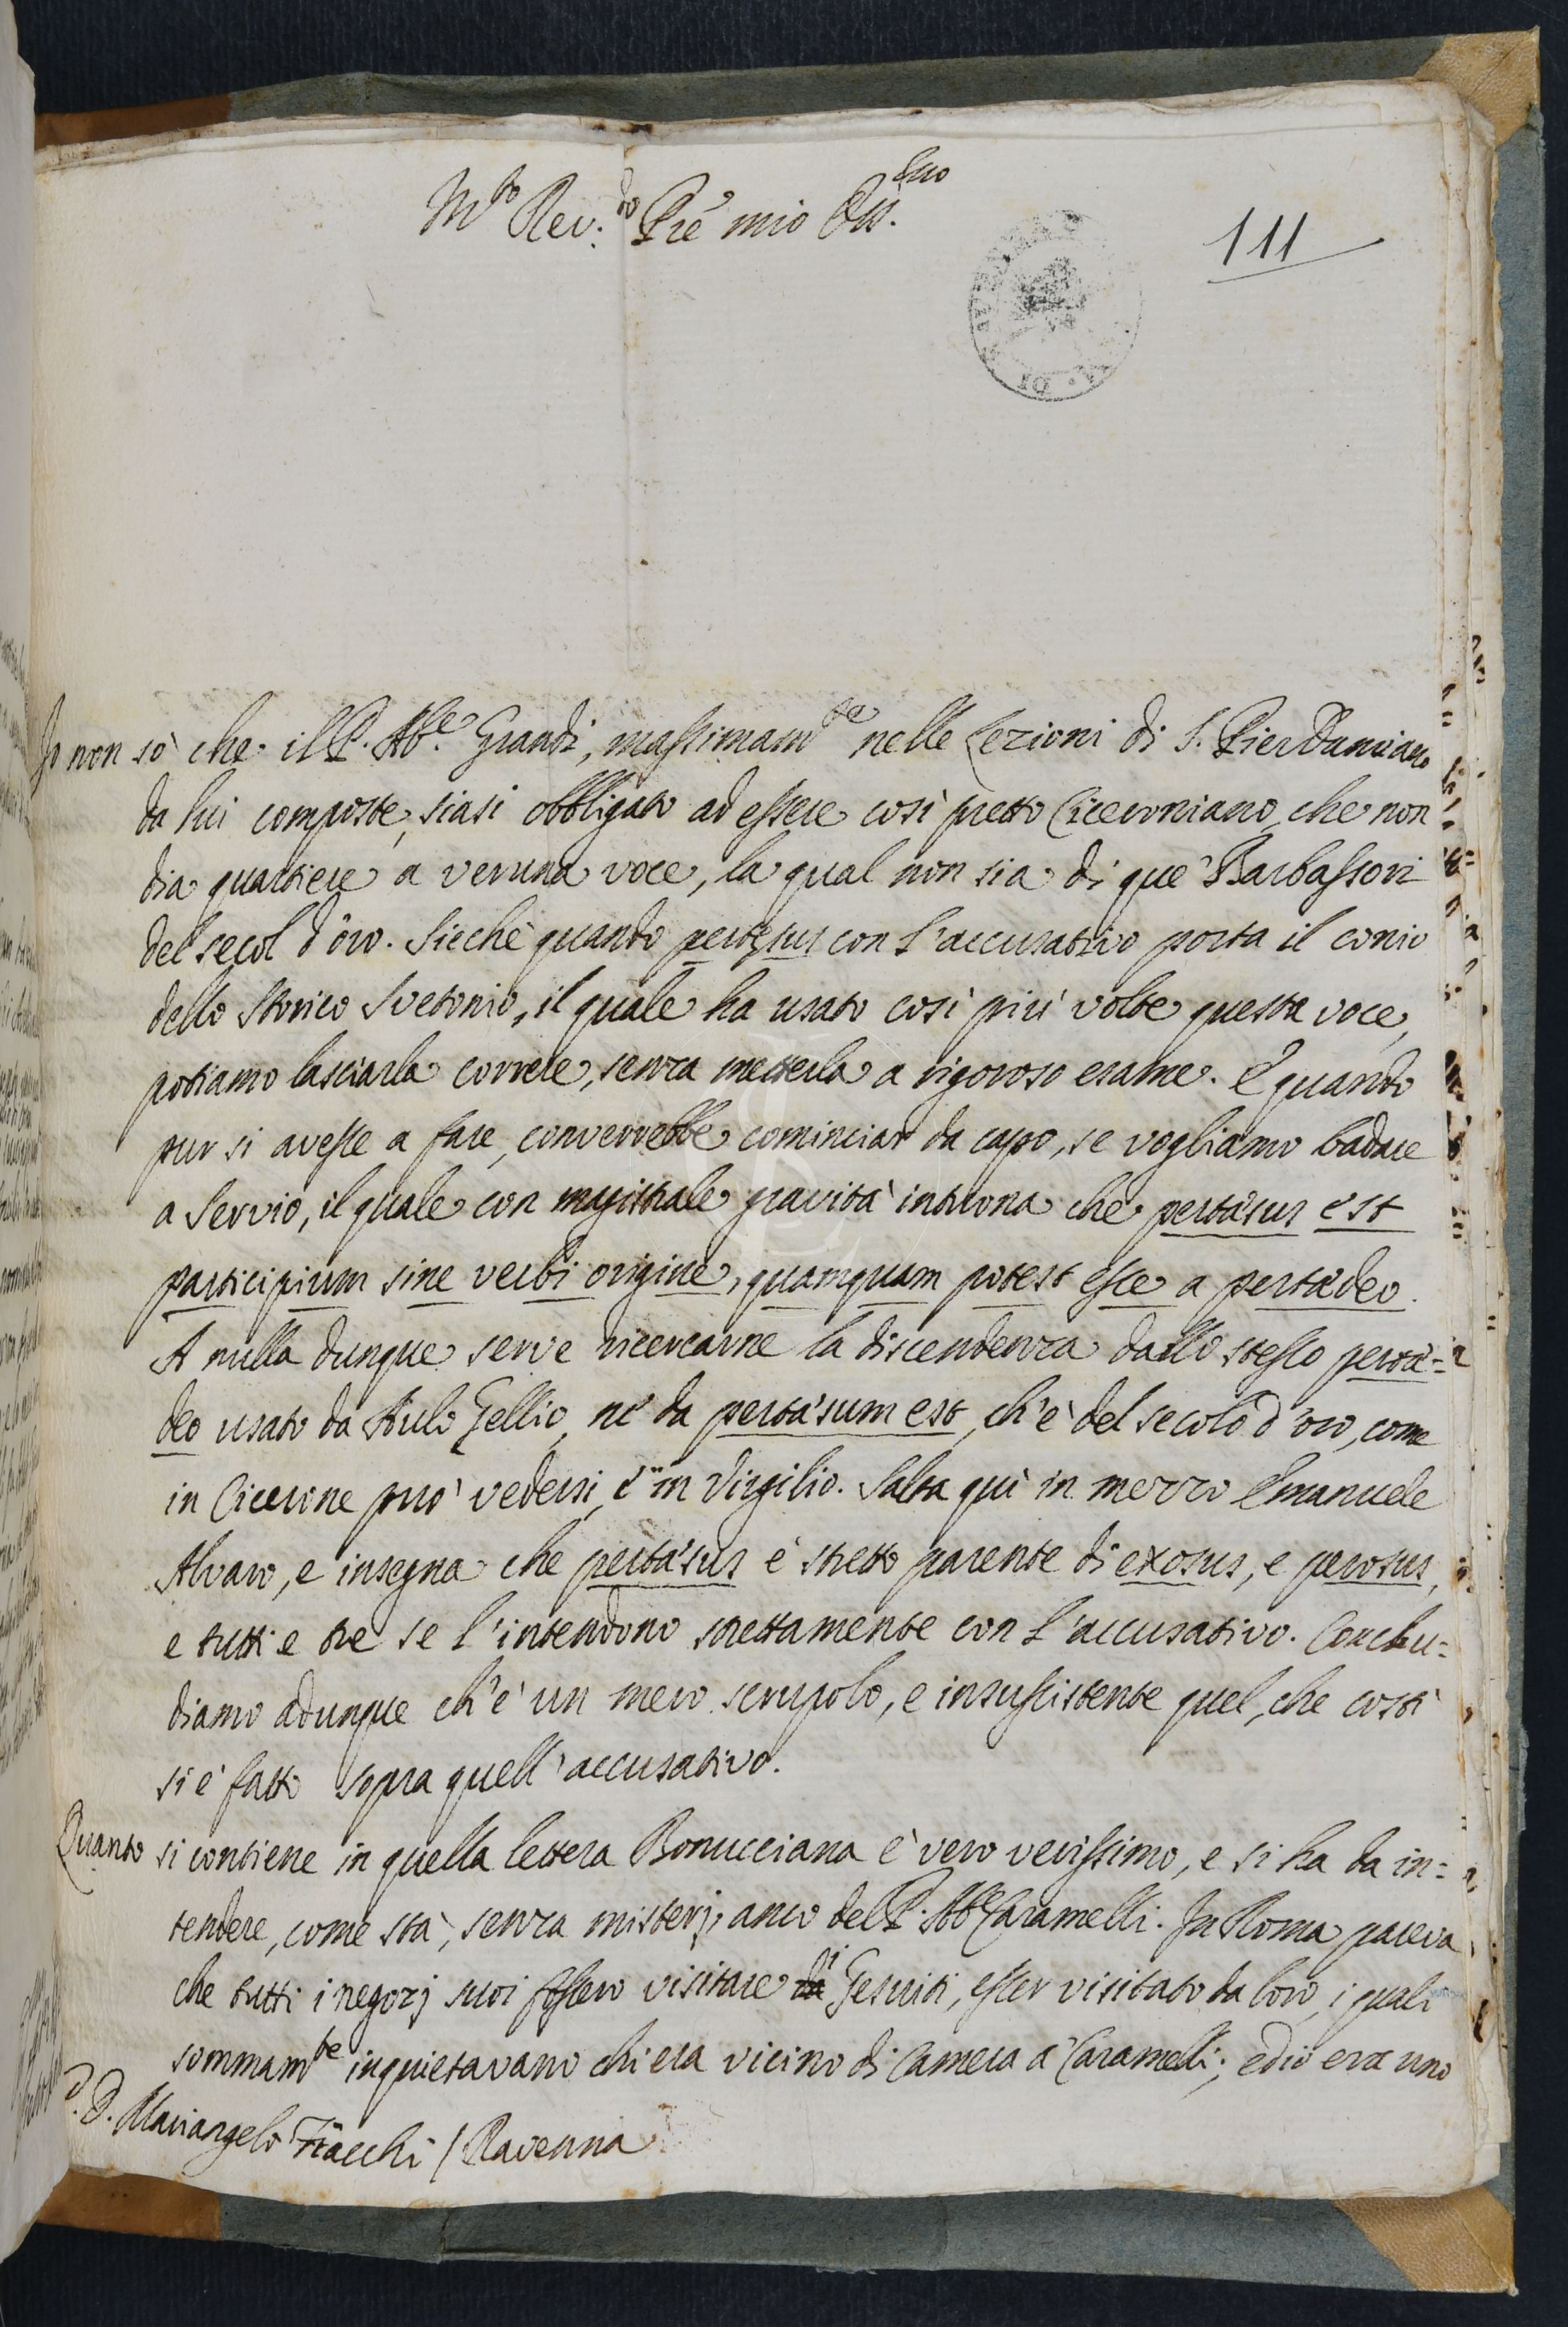 M.to Rev.do Pre mio Oss.mo
111
DI
Io non sò che il P. Ab.e Grandi, massimam.te nelle Lezioni di S. Pier Damiano
da lui composte, siasi obbligato ad essere così pretto Ciceroniano, che non
dia quartiere a veruna voce, la qual non sia di que' Barbassori
del secol d'oro. Sicchè quando pertesus con l'accusativo porta il conio
dello Storico Svetonio, il quale ha usato così più volte questa voce,
potiamo lasciarla correre, senza metterla a rigoroso esame. E quando
pur si avesse a fare, converrebbe cominciar da capo, se vogliamo badare
a Servio, il quale con magistrale gravità intuona che pertæsus est
participium sine verbi origine, quamquam potest esse a pertædeo.
A nulla dunque serve ricercarne la discendenza dallo stesso pertæ=
deo usato da Aulo Gellio, nè da pertæsum est, ch'è del secolo d'oro, come
in Cicerone può vedersi, e in Virgilio. Salta quì in mezzo Emanuele
Alvaro, e insegna che pertæsus è stretto parente di exosus, e perosus,
e tutti e tre se l'intendono strettamente con l'accusativo. Conchiu=
diamo adunque ch'è un mero scrupolo, e insussistente quel, che costì
si è fatto sopra quell'accusativo.
Quanto si contiene in quella lettera Bonucciana è vero verissimo, e si ha da in=
tendere, come sta, senza misterj, anco del P. Ab.e Caramelli. In Roma pareva
che tutti i negozj suoi fossero visitare i Gesuiti, esser visitato da loro, i quali
sommam.te inquietavano chi era vicino di Camera a Caramelli; ed io era uno
P. D. Mariangelo Fiacchi / Ravenna